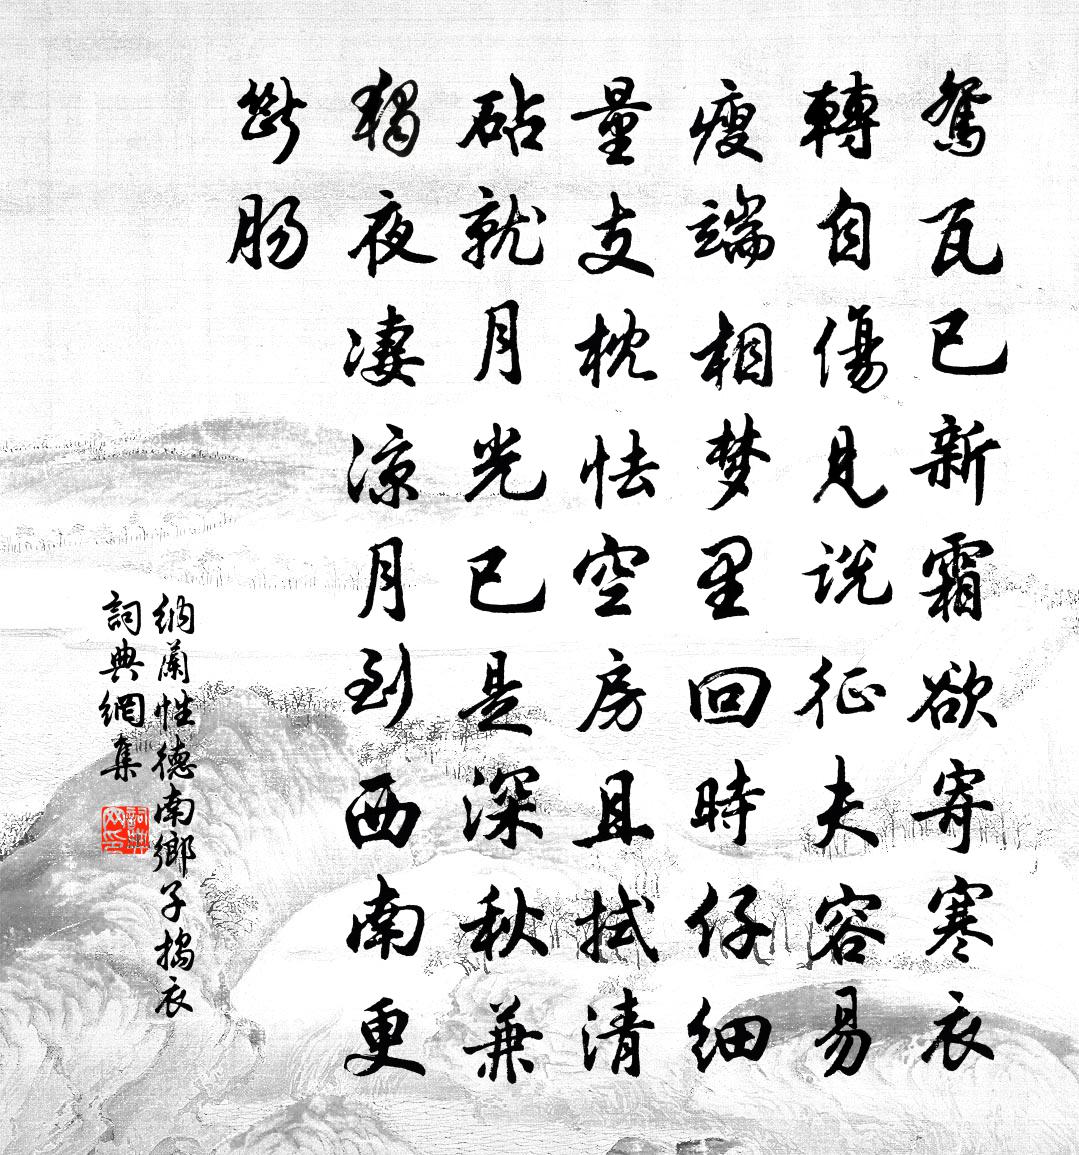 鴛瓦已新霜欲寄寒衣
轉自傷見説征夫容易
瘦端相梦里回時仔細
量支枕怯空房且拭清
砧就月光已是深秋兼
獨夜凄涼月到西南更
斷腸
納蘭性德南鄉子搗衣
詞典網集